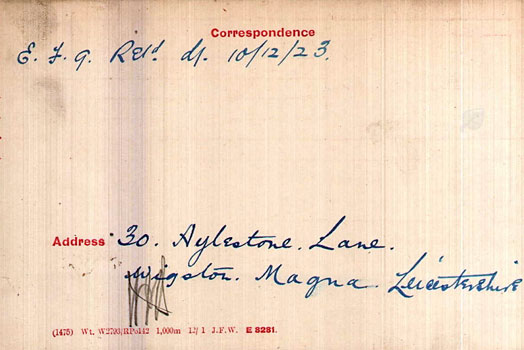 Correspondence
E. F. 9. Retd. d/. 10/12/23.
Address 30. Aylestone. Lane.
Wigston. Magna. Leicestershire
(1475) Wt. W2793/RP6142 1,000m 12/1 J.F.W. E 8281.